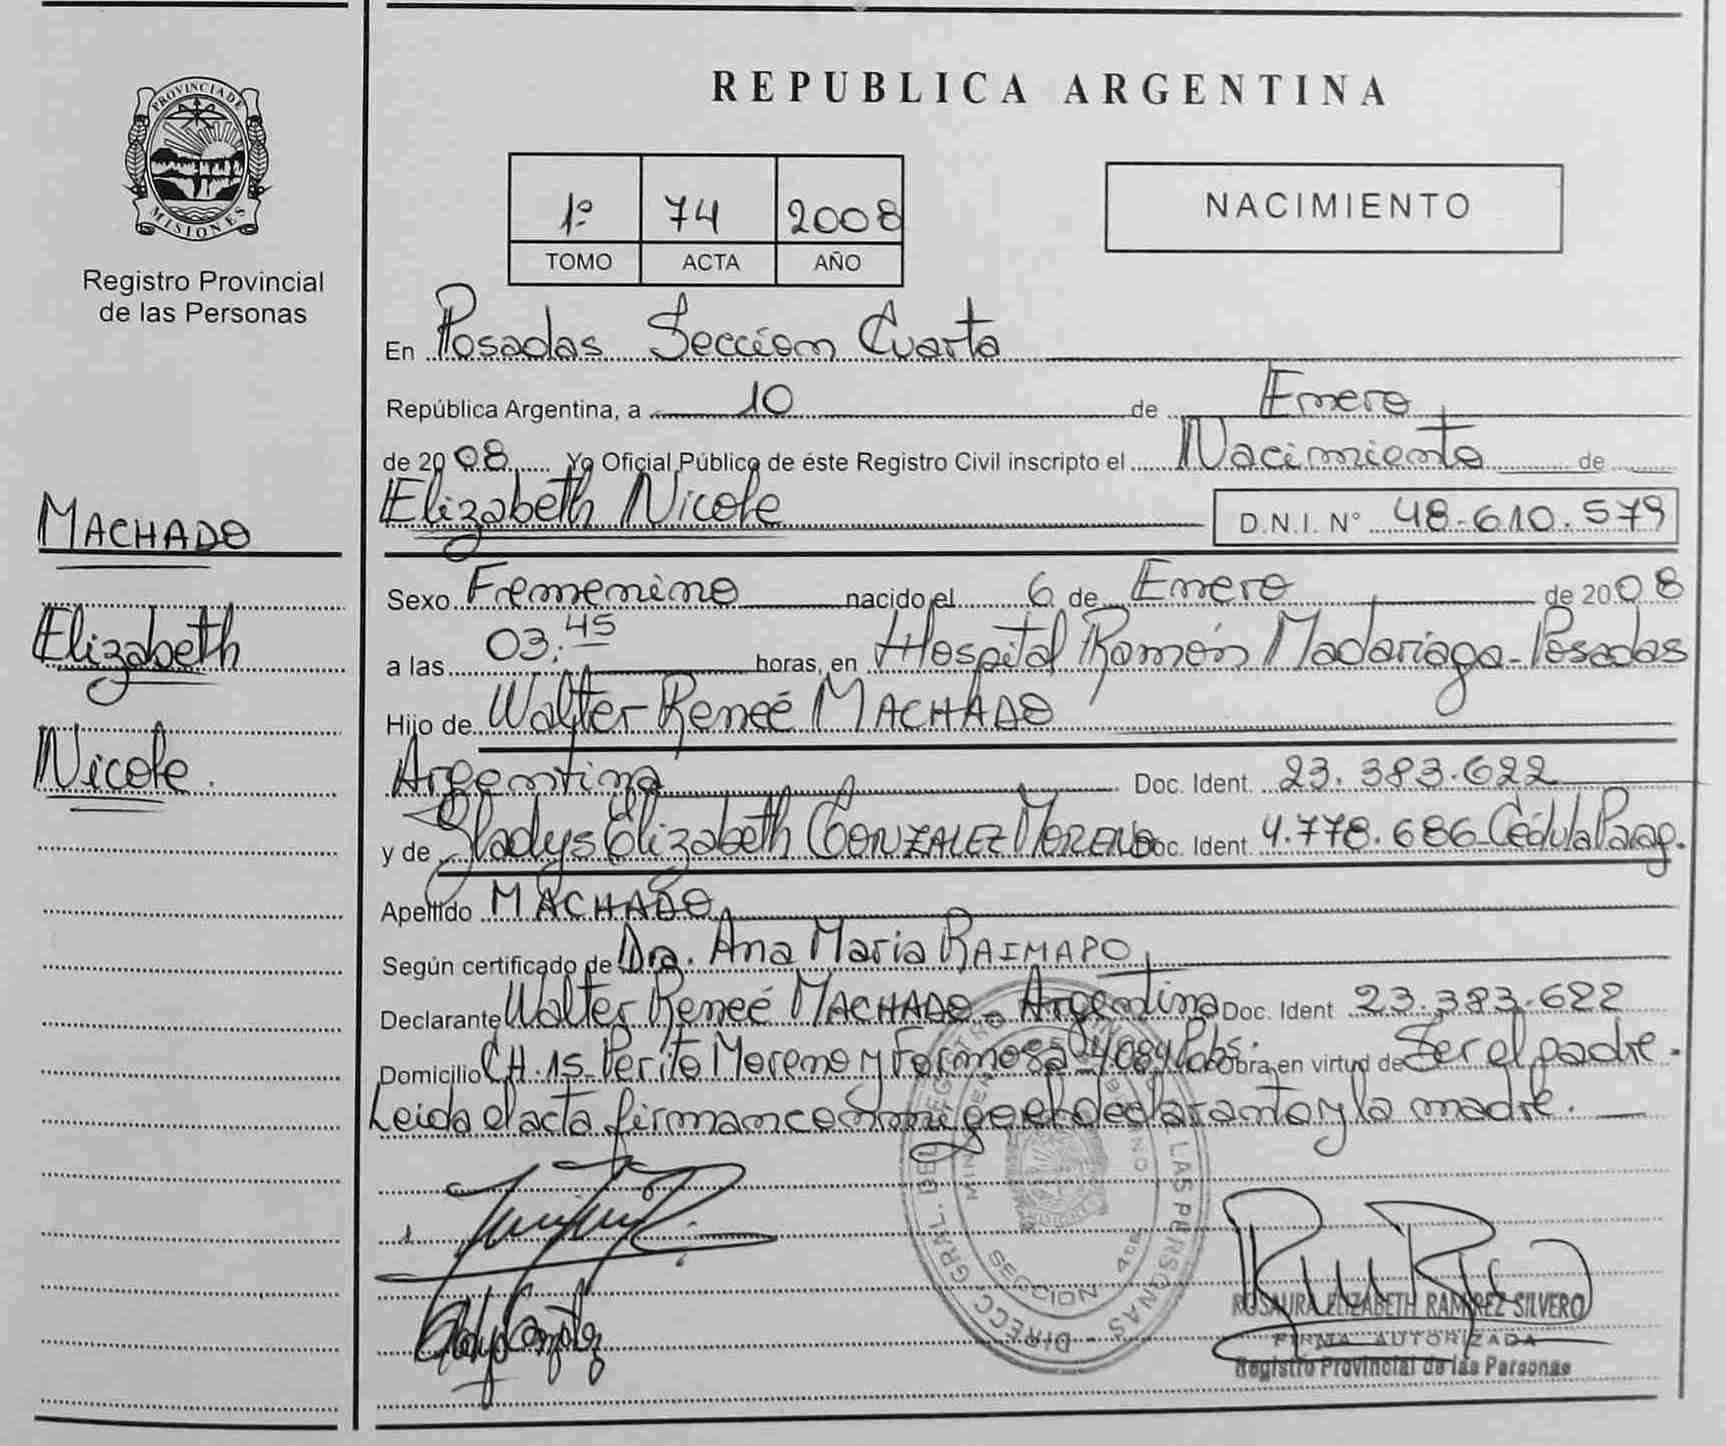 PROVINCIA DE
MISIONES
Registro Provincial
de las Personas
MACHADO
Elizabeth
Nicole.
REPUBLICA ARGENTINA
1º 74 2008
TOMO ACTA AÑO
NACIMIENTO
En Posadas Sección Cuarta
República Argentina, a 10 de Enero
de 2008 Yo Oficial Público de éste Registro Civil inscripto el Nacimiento de
Elizabeth Nicole D.N.I. Nº 48.610.579
Sexo Femenino nacido el 6 de Enero de 2008
a las 03:45 horas, en Hospital Ramón Madariaga - Posadas
Hijo de Walter Reneé MACHADO
Argentina Doc. Ident. 23.383.622
y de Gladys Elizabeth GONZALEZ MORENO Doc. Ident. 4.778.686 Cédula Parag.
Apellido MACHADO
Según certificado de Dra. Ana Maria
Declarante Walter Reneé MACHADO - Argentina Doc. Ident 23.383.622
Domicilio CH.15 Perito Moreno y Formosa 4084 Pdas. Obra en virtud de Ser el padre.
Leida el acta firman conmigo el declarante y la madre.
DIRECC. GRAL. DEL REGISTRO LAS PERSONAS
ROSAURA ELIZABETH RAMIREZ SILVERO
FIRMA AUTORIZADA
Registro Provincial de las Personas